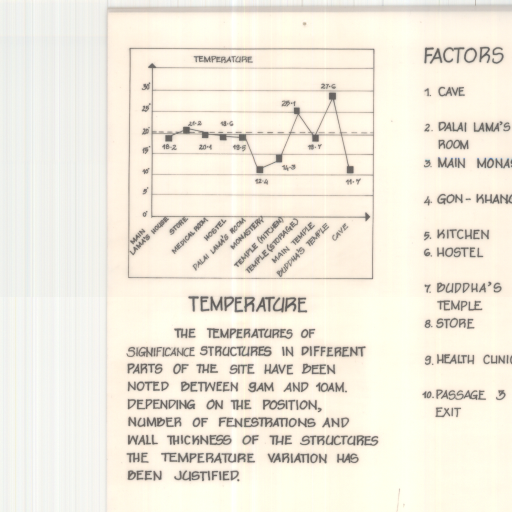 TEMPERATURE
30'
25'
20'
15'
10'
5'
0'
18·2
21·2
20·1
18·6
18·5
12·4
14·3
25·1
18·7
27·6
11·7
MAIN
LAMA'S HOUSE
STORE
MEDICAL ROOM
HOSTEL
DALAI LAMA'S ROOM
MONASTERY
TEMPLE (KITCHEN)
TEMPLE (STORAGE)
MAIN TEMPLE
BUDDHA'S TEMPLE
CAVE
TEMPERATURE
THE TEMPERATURES OF
SIGNIFICANCE STRUCTURES IN DIFFERENT
PARTS OF THE SITE HAVE BEEN
NOTED BETWEEN 9AM AND 10AM.
DEPENDING ON THE POSITION,
NUMBER OF FENESTRATIONS AND
WALL THICKNESS OF THE STRUCTURES
THE TEMPERATURE VARIATION HAS
BEEN JUSTIFIED.
FACTORS
1. CAVE
2. DALAI LAMA'S
ROOM
3. MAIN MONAS
4. GON-KHANG
5. KITCHEN
6. HOSTEL
7. BUDDHA'S
TEMPLE
8. STORE
9. HEALTH CLINIC
10. PASSAGE 3
EXIT